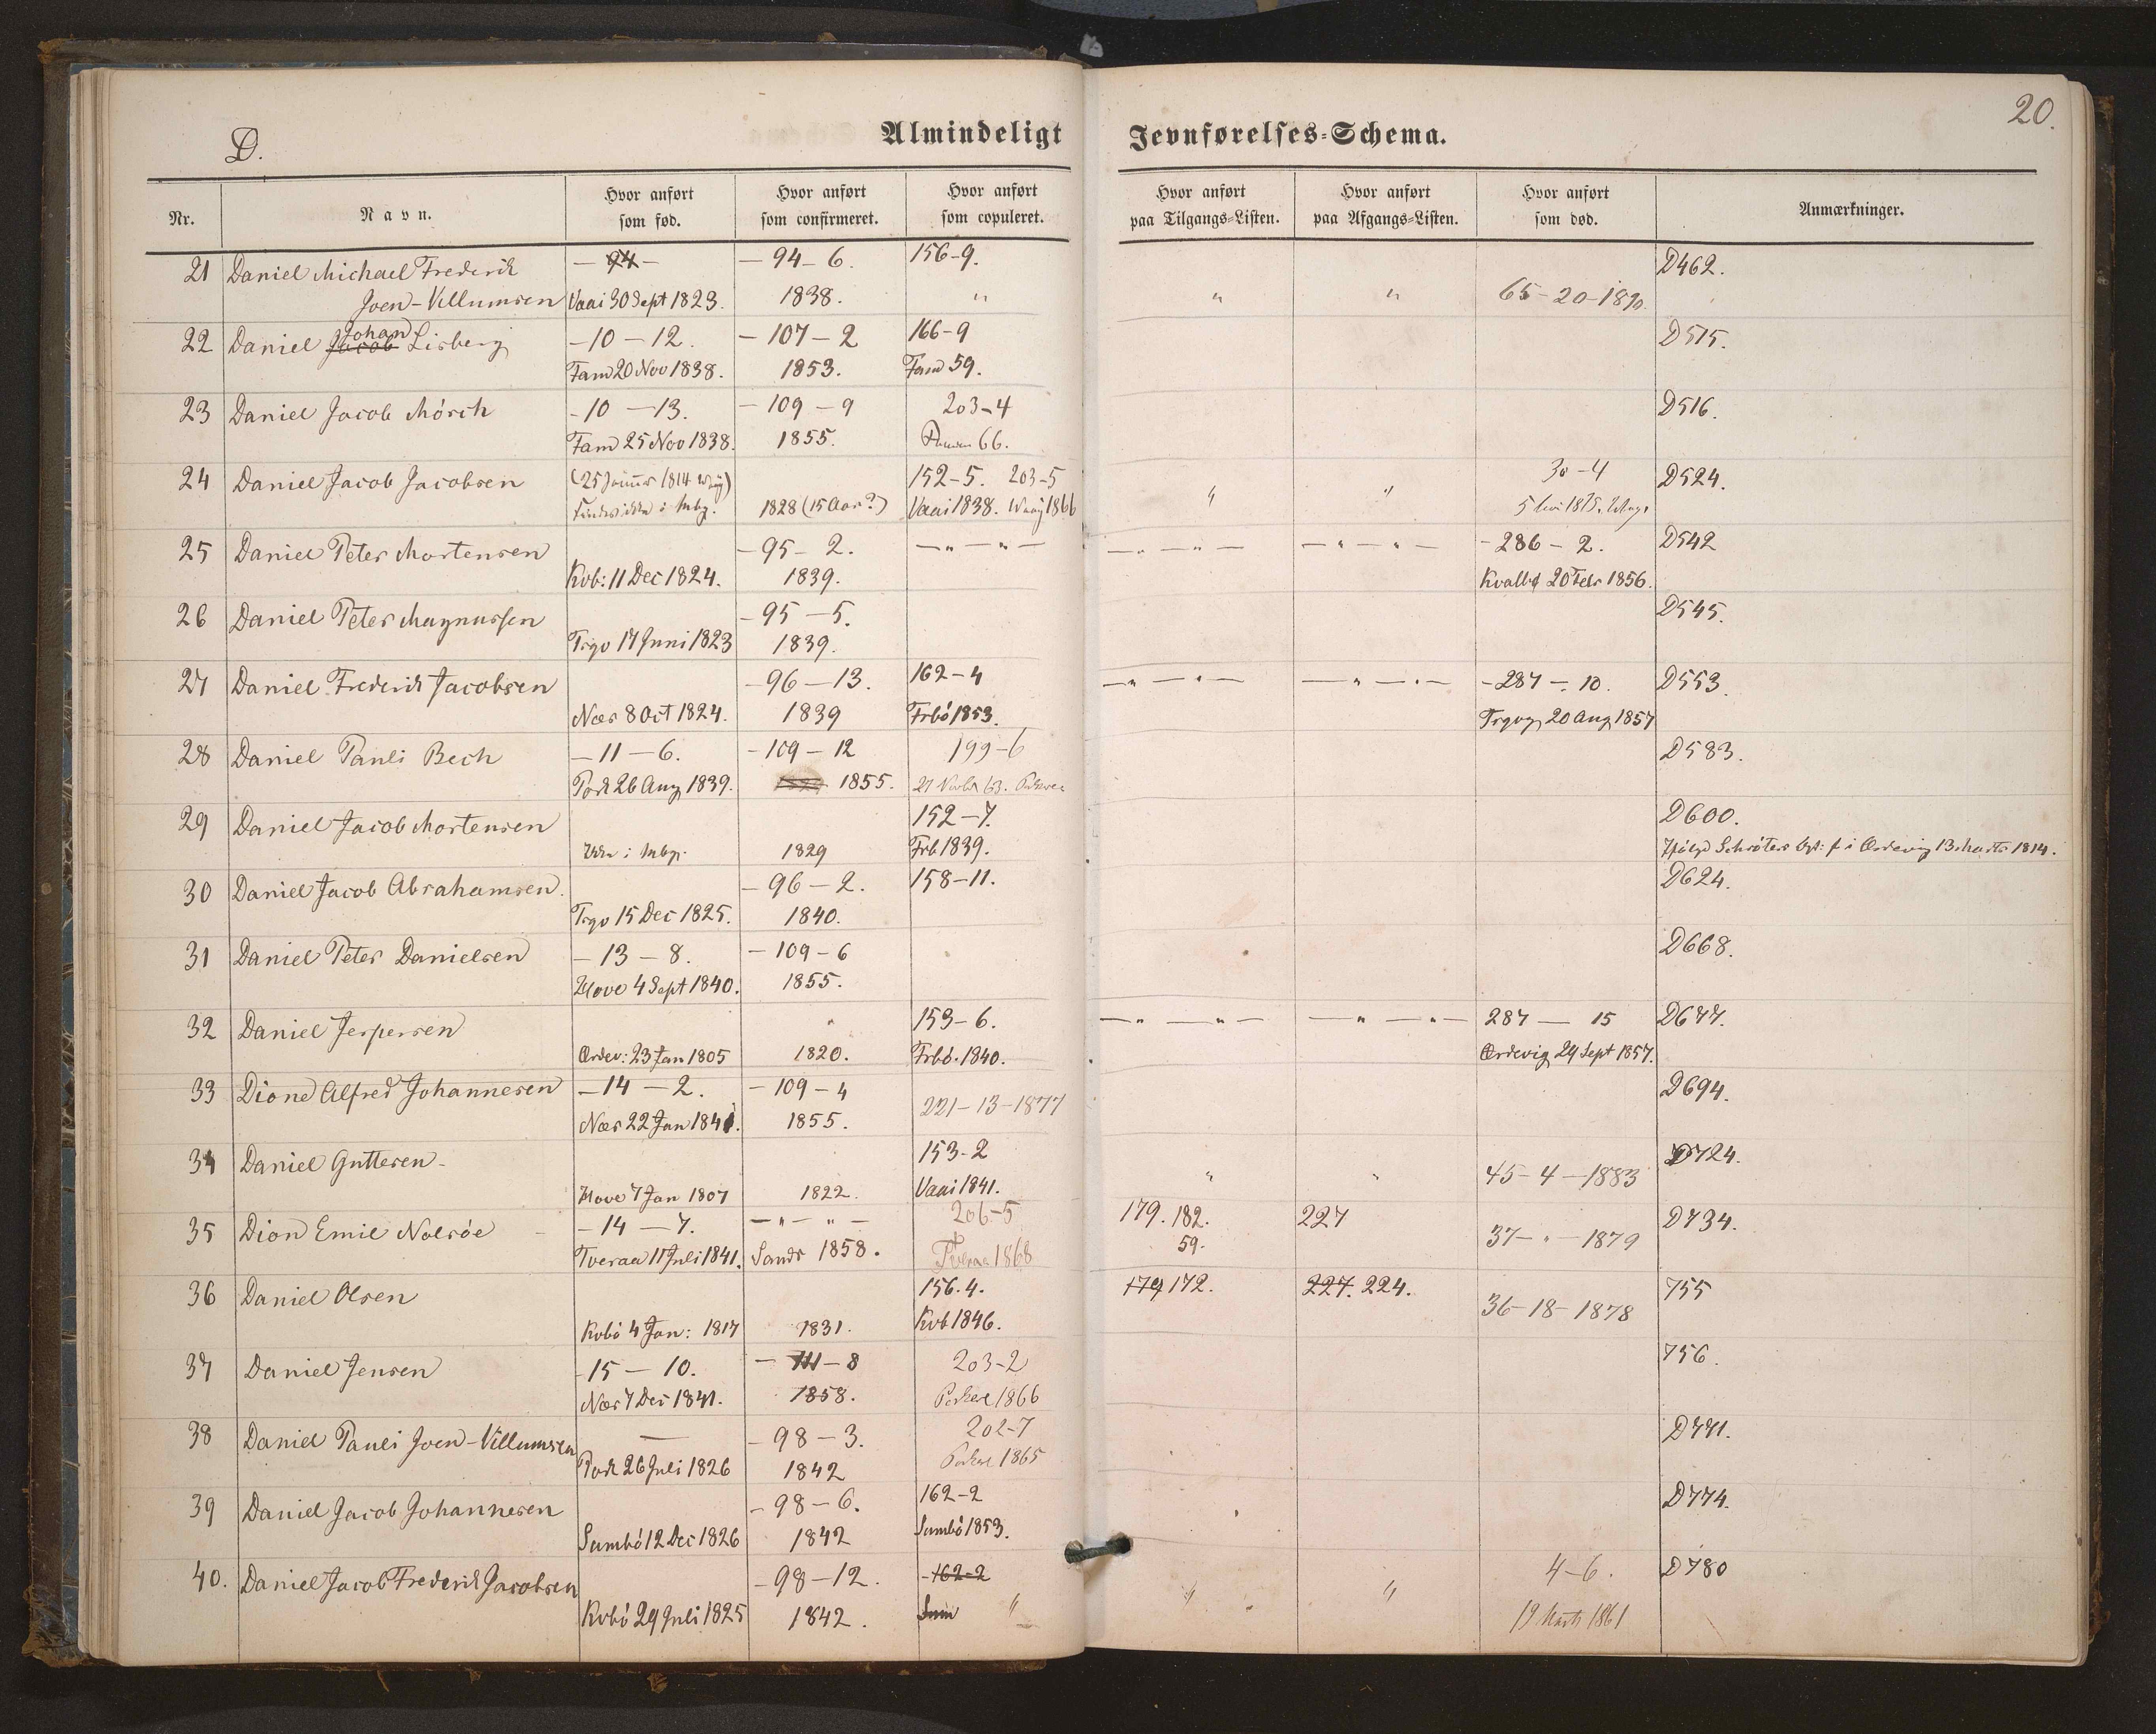 20.
D.
Almindeligt Jevnførelses-Schema.
Nr. Navn. Hvor anført som fød. Hvor anført som confirmeret. Hvor anført som copuleret. Hvor anført paa Tilgangs-Listen. Hvor anført paa Afgangs-Listen. Hvor anført som død. Anmærkninger.
21 Daniel Michael Frederik — 94 — — 94 — 6. 156-9. D462.
Joen-Villumsen Vaai 30 Sept 1823. 1838. " " " 65-20-1890.
22 Daniel Jacob Johan Lisberg — 10 — 12. — 107 — 2 166-9 D515.
Fam 20 Nov 1838. 1853. Fam 59.
23 Daniel Jacob Mörch - 10 — 13. — 109 — 9 203-4 D516.
Fam 25 Nov 1838. 1855. 66.
24 Daniel Jacob Jacobsen (25 1814 152-5. 203-5 30-4 D524.
1828 (15 Aar?) Vaai 1838. Waaj 1866 " "
25 Daniel Peter Mortensen — 95 — 2. — " — " — — " — " — — " — " — - 286 — 2. D542
Kvb: 11 Dec 1824. 1839. Kvalbø 20 Febr 1856.
26 Daniel Peter Magnussen — 95 — 5. D545.
Trgv 17 Juni 1823 1839.
27 Daniel Frederik Jacobsen — 96 — 13. 162-4 — " — " — — " — " — - 287 — 10. D553.
Næs 8 Oct 1824. 1839 Frbö 1853. Trgvg 20 Aug 1857
28 Daniel Pauli Bech — 11 — 6. — 109 — 12 199-6 D583.
Pork 26 Aug 1839. 1855. 63.
29 Daniel Jacob Mortensen 152-7. D600.
Ikke i Mbg. 1829 Frb 1839. Schröters f i Ördevig 13 Marts 1814.
30 Daniel Jacob Abrahamsen. — 96 — 2. 158-11. D624.
Trgv 15 Dec 1825. 1840.
31 Daniel Peter Danielsen — 13 — 8. — 109 — 6 D668.
Hove 4 Sept 1840. 1855.
32 Daniel Jespersen 153-6. — " — " — — " — " — 287 — 15 D677.
Ördev: 23 Jan 1805 1820. Frbö. 1840. Ördevig 24 Sept 1857.
33 Dione Alfred Johannesen — 14 — 2. — 109 — 4 221-13-1877 D694.
Næs 22 Jan 1841. 1855.
34 Daniel Guttesen - 153-2 " " 45-4-1883 D724.
Hove 7 Jan 1807 1822. Vaai 1841.
35 Dion Emil Nolsöe — 14 — 7. — " — " — 206-5 179. 182. 227 37 - " - 1879 D734.
Tveraa 11 Juli 1841. Sands 1858. Tveraa 1868 59.
36 Daniel Olsen 156.4. 179 172. 227. 224. 36-18-1878 755
Kvbö 4 Jan: 1817 1831. Kvb 1846.
37 Daniel Jensen - 15 — 10. — 111 — 8 203-2 756.
Næs 7 Dec 1841. 1858. Porkere 1866
38 Daniel Pauli Joen-Villumsen — — 98 — 3. 202-7 D771.
Pork 26 Juli 1826 1842 Porkere 1865
39 Daniel Jacob Johannesen — 98 — 6. 162-2 D774.
Sumbö 12 Dec 1826 1842 Sumbö 1853.
40. Daniel Jacob Frederik Jacobsen — 98 — 12. - 162-2 " " 4-6. D780
Kvbö 29 Juli 1825 1842. Sum " 19 Marts 1861